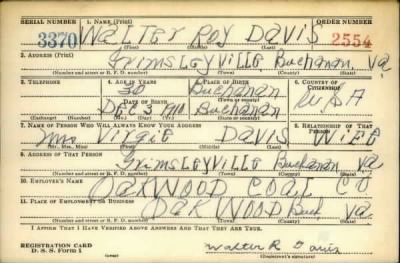 SERIAL NUMBER 1. NAME (Print) ORDER NUMBER
3370 WALTER ROY DAVIS 2554
(First) (Middle) (Last)
2. ADDRESS (Print)
Grimsleyville Buchanan Va
(Number and street or R. F. D. number) (Town) (County) (State)
3. TELEPHONE 4. AGE IN YEARS 5. PLACE OF BIRTH 6. COUNTRY OF CITIZENSHIP
30 Buchanan USA
DATE OF BIRTH (Town or county)
Dec 3 1910 Buchanan
(Exchange) (No.) (Mo.) (Day) (Yr.) (State or country)
7. NAME OF PERSON WHO WILL ALWAYS KNOW YOUR ADDRESS 8. RELATIONSHIP OF THAT PERSON
Mrs Virgie DAVIS WIFE
(Mr., Mrs., Miss) (First) (Middle) (Last)
9. ADDRESS OF THAT PERSON
Grimsleyville Buchanan Va
(Number and street or R. F. D. number) (Town) (County) (State)
10. EMPLOYER'S NAME
OAKWOOD COAL CO
11. PLACE OF EMPLOYMENT OR BUSINESS
OAKWOOD Buch Va.
(Number and street or R. F. D. number) (Town) (County) (State)
I AFFIRM THAT I HAVE VERIFIED ABOVE ANSWERS AND THAT THEY ARE TRUE.
REGISTRATION CARD
D. S. S. Form 1
Walter R Davis
(Registrant's signature)